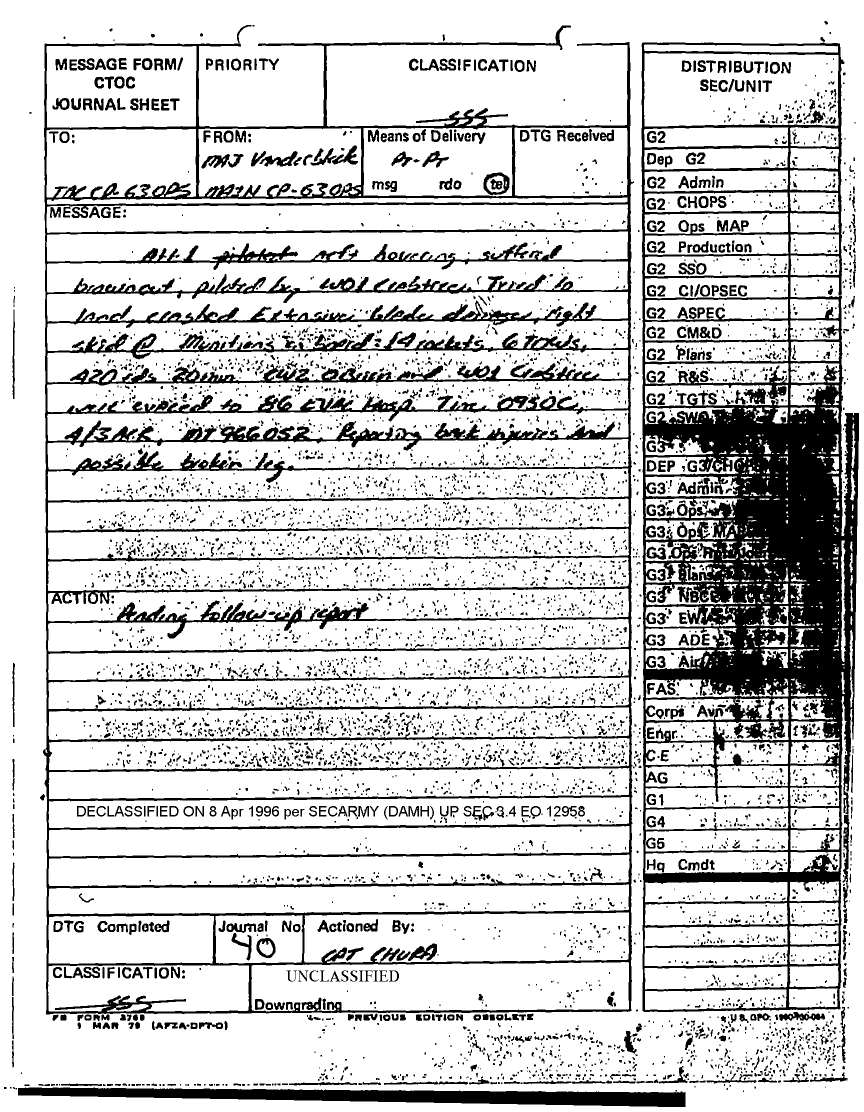 MESSAGE FORM/
CTOC
JOURNAL SHEET
PRIORITY
CLASSIFICATION
SSS
TO:
TAC CP-G3 OPS
FROM:
MAJ
MAIN CP-G3 OPS
Means of Delivery
Pt-Pt
msg rdo tel
DTG Received
MESSAGE:
AH-1 piloted acft hovering, suffered
brownout, piloted by WO1 Crabtree. Tried to
land, crashed. Extensive blade damage, right
skid @. Munitions on board: 14 rockets, 6 TOWs,
420 rds 20mm. CW2 OBrien and WO1 Crabtree
were evaced to 86 EVAC Hosp. Time 0930C,
4/3 ACR, MT966052, Reporting back injuries and
possible broken leg.
ACTION:
Pending follow-up report
DECLASSIFIED ON 8 Apr 1996 per SECARMY (DAMH) UP SEC 3.4 EO 12958
DTG Completed
Journal No
40
Actioned By:
CPT CHURA
CLASSIFICATION:
SSS
UNCLASSIFIED
Downgrading
FB FORM
1 MAR 79 (AFZA-DPT-O)
PREVIOUS EDITION OBSOLETE
DISTRIBUTION
SEC/UNIT
G2
Dep G2
G2 Admin
G2 CHOPS
G2 Ops MAP
G2 Production
G2 SSO
G2 CI/OPSEC
G2 ASPEC
G2 CM&D
G2 Plans
G2 R&S
G2 TGTS
G2 SWO
G3
DEP G3/CHOPS
G3 Admin
G3 Ops
G3 Ops MAP
G3 Ops
G3 Plans
G3 NBC
G3 EW
G3 ADE
G3 Air
FAS
Corps Avn
Engr
C-E
AG
G1
G4
G5
Hq Cmdt
U.S. GPO: